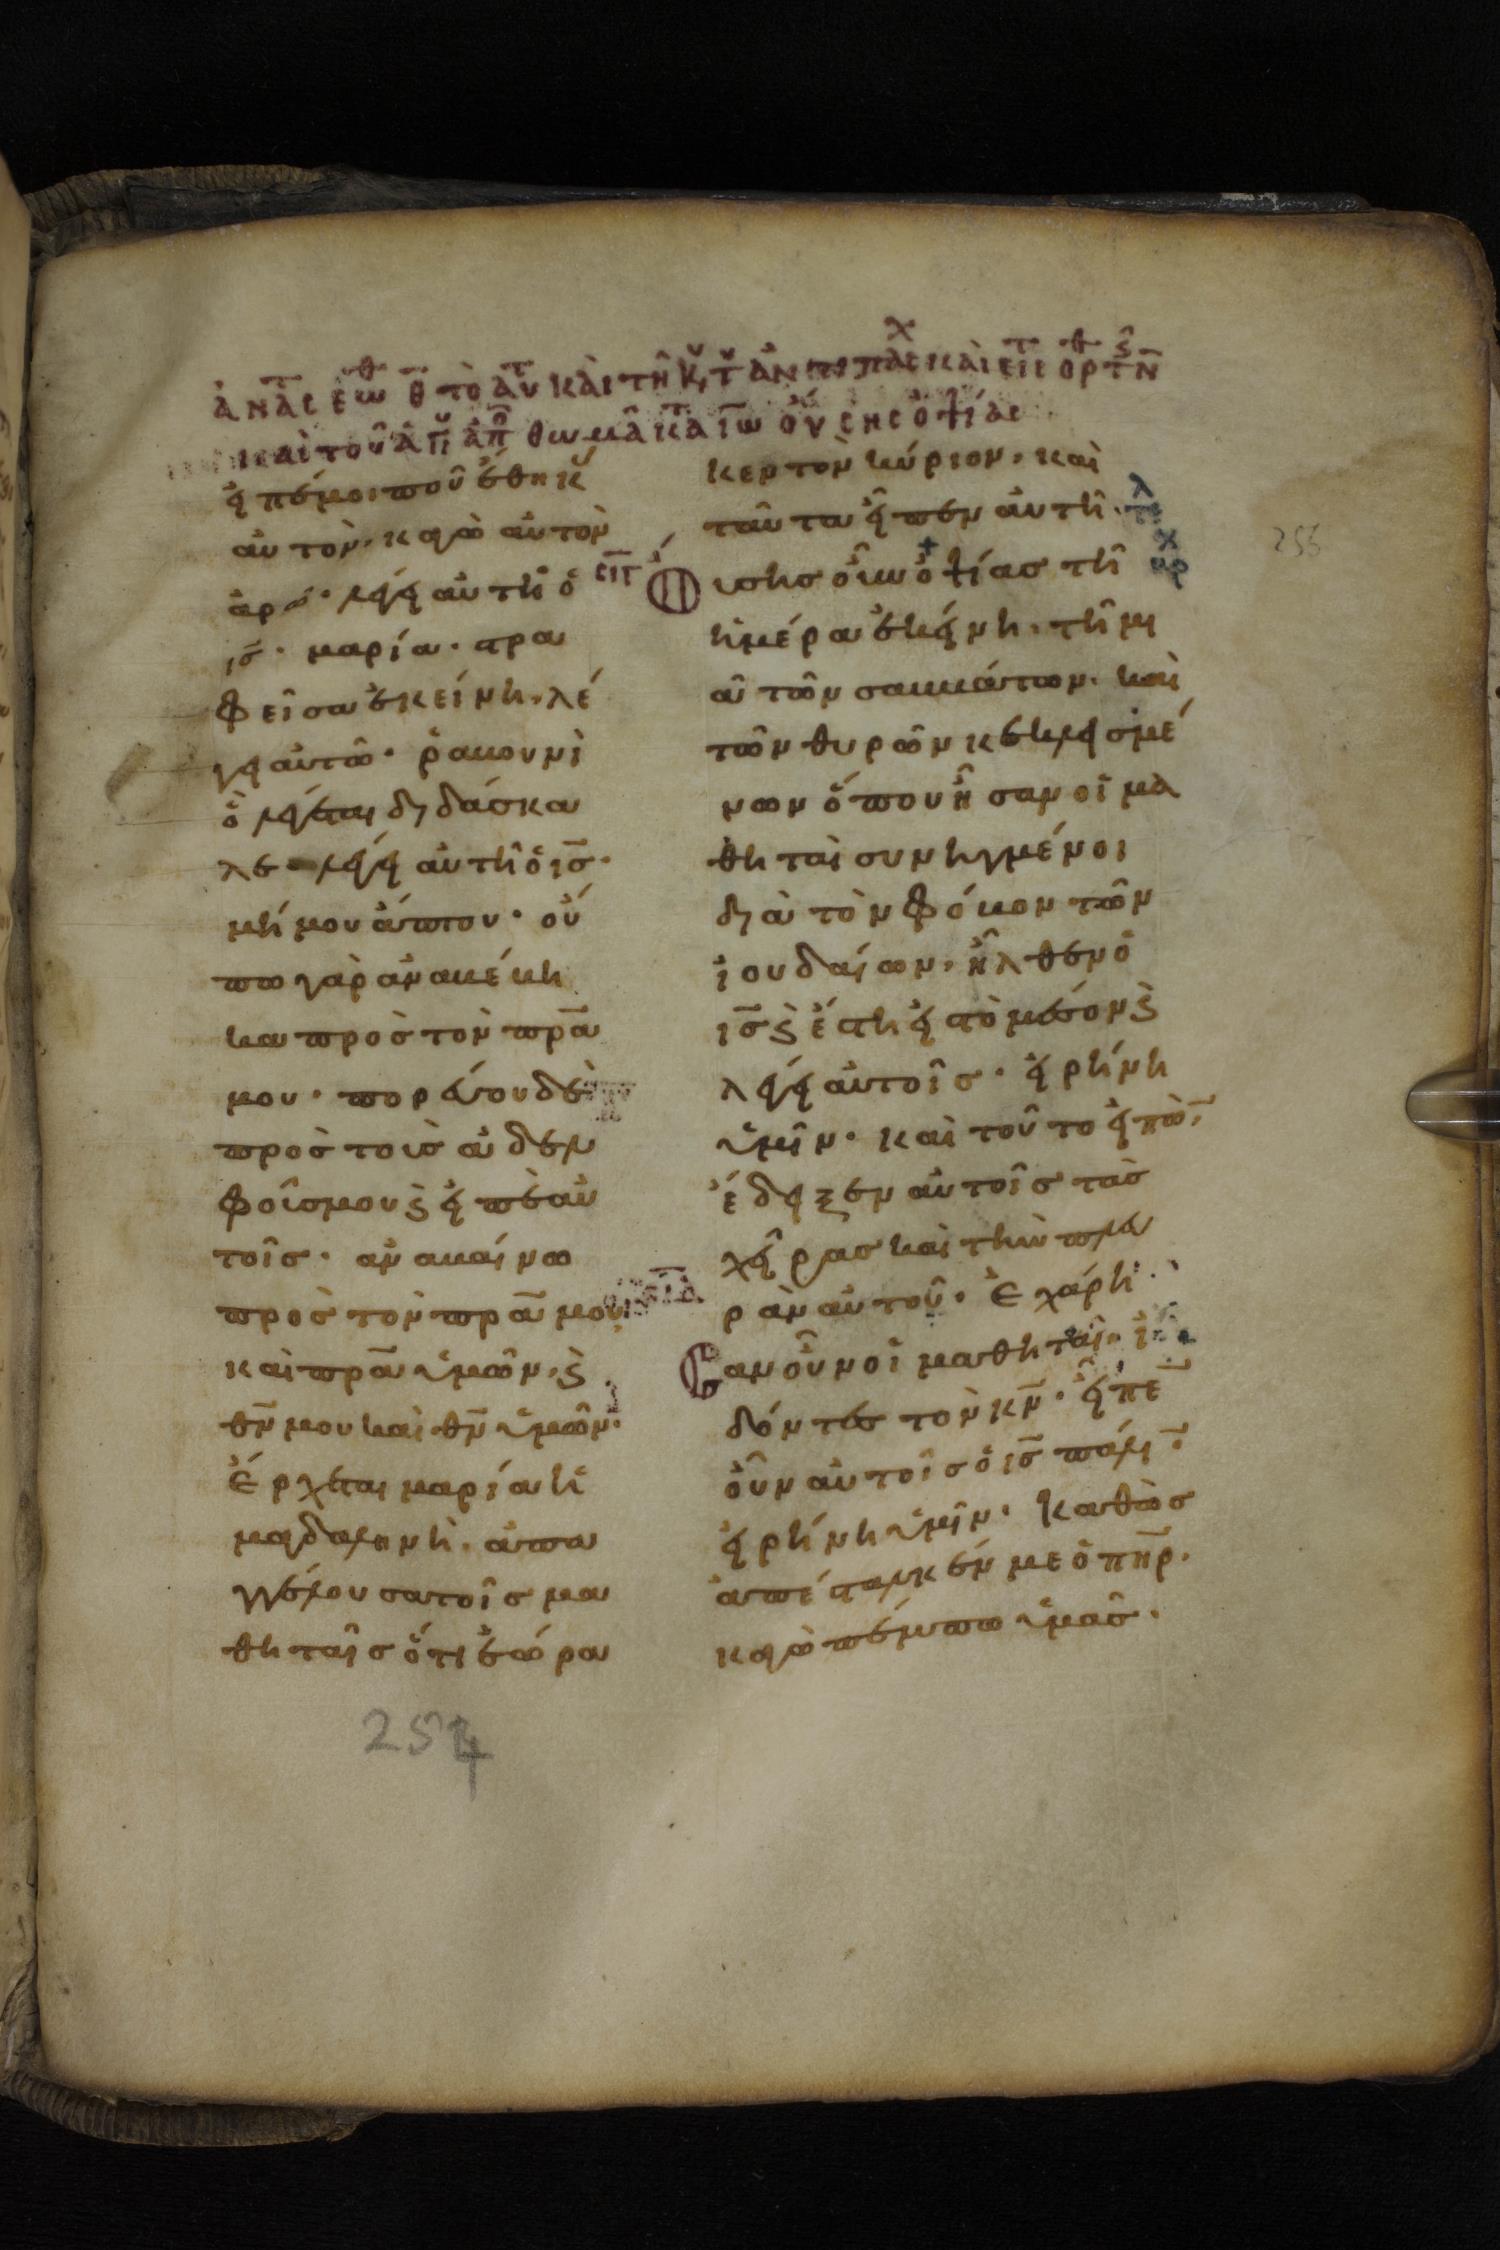 εἰπέ μοι ποῦ ἔθηκ
αὐτὸν, κἀγὼ αὐτὸν
ἀρῶ· λέγει αὐτῆ ὁ
ις̅· μαρία· στρα
φεῖσα ἐκείνη, λέ
γει αὐτῶ· ῥαβουνὶ
ὃ λέγεται διδάσκα
λε λέγει αὐτῆ ὁ ις̅·
μή μου ἅπτου· οὔ
πω γὰρ ἀναβέβη
κα πρὸς τὸν πρ̅α
μου· πορεύου δὲ
πρὸς τοὺς ἀδελ
φοῖς μου ϗ εἰπὲ αὐ
τοῖς· ἀναβαίνω
πρὸς τὸν πρ̅α μου
καὶ πρ̅α ὑμῶν, ϗ
θν̅ μου καὶ θν̅ ὑμῶν·
Ἔρχεται μαρία ἡ
μαγδαληνὴ, ἀπα
γγέλουσα τοῖς μα
θηταῖς ὅτι ἑώρα
κεν τὸν κύριον, καὶ
ταῦτα εἶπεν αὐτῆ·
Οὔσης οὖν ὀψίας τῆ
ἡμέρα ἐκείνη, τῆ μι
ᾶ τῶν σαββάτων, καὶ
τῶν θυρῶν κεκλεισμέ
νων ὅπου ἦσαν οἱ μα
θηταὶ συνηγμένοι
διὰ τὸν φόβον τῶν
ἰουδαίων, ἦλθεν ὁ
ις̅ ϗ ἔστη εἰς τὸ μέσον ϗ
λέγει αὐτοῖς· εἰρήνη
ὑμῖν· καὶ τοῦτο εἰπὼ̅
ἔδειξεν αὐτοῖς τὰς
χεῖρας καὶ τὴν πλευ
ρὰν αὐτοῦ· Ἐχάρη
σαν οὖν οἱ μαθηταὶ, ἰ
δόντες τὸν κν̅· εἶπε̅
οὖν αὐτοῖς ὁ ις̅ πάλι̅
εἰρήνη ὑμῖν· καθὼς
ἀπέσταλκέν με ὁ πη̅ρ·
κἀγὼ πέμπω ὑμᾶς·
254